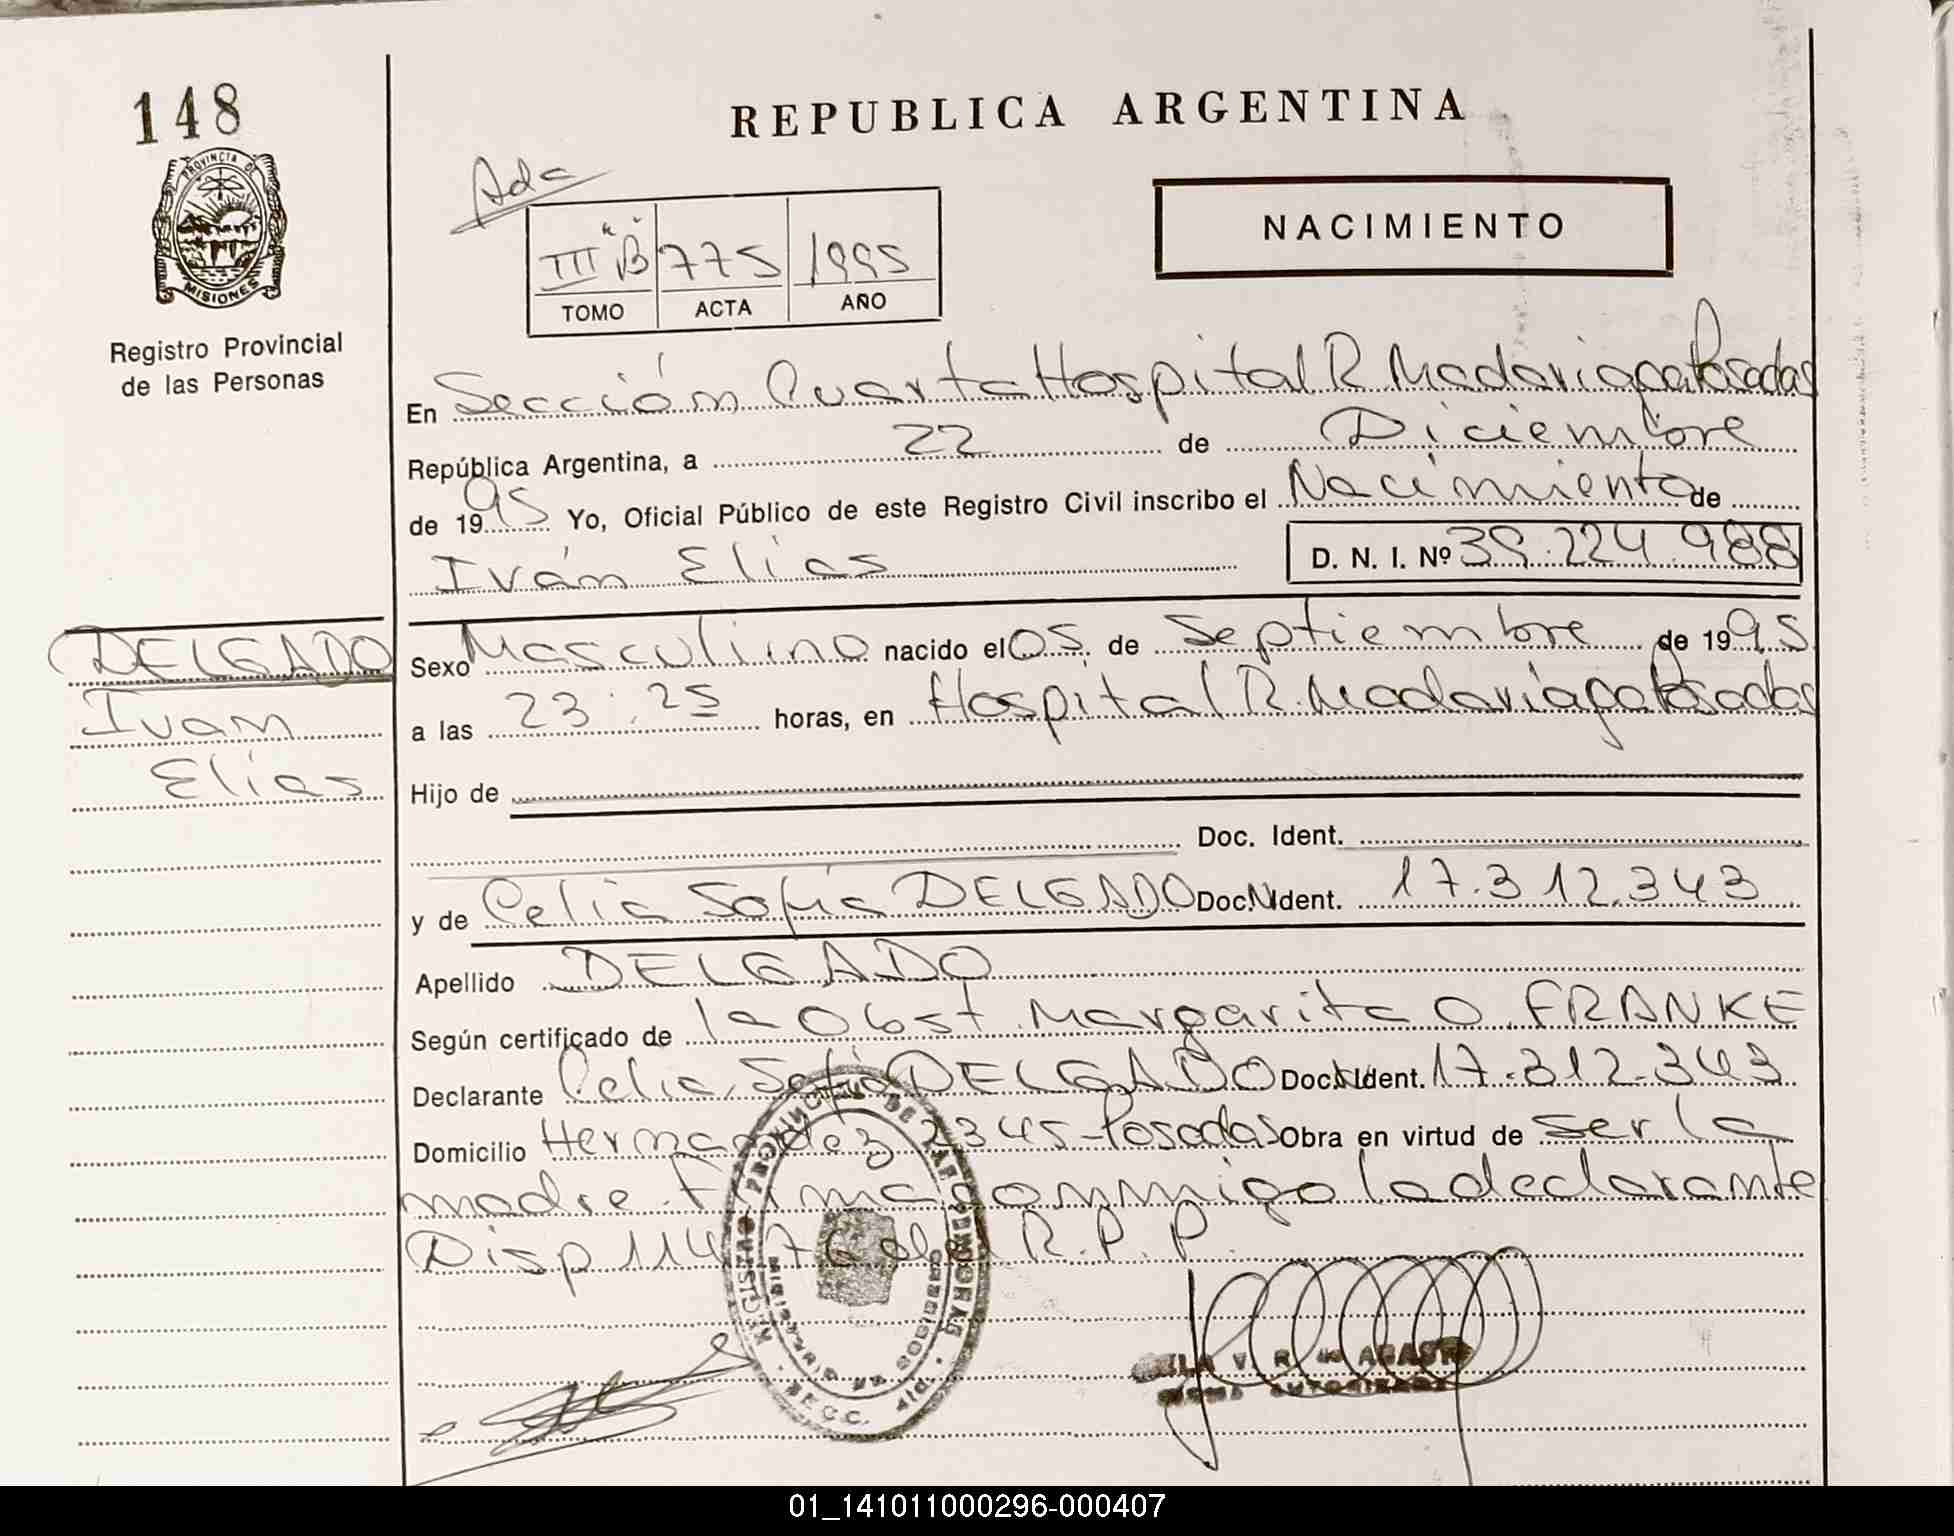 148
REPUBLICA ARGENTINA
PROVINCIA DE
MISIONES
Registro Provincial
de las Personas
Ada
III "B" 775 1995
TOMO ACTA AÑO
NACIMIENTO
En Sección Cuarta Hospital R Madariaga Posadas
República Argentina, a 22 de Diciembre
de 1995 Yo, Oficial Público de este Registro Civil inscribo el Nacimiento de
Iván Elias D. N. I. Nº 39.224.988
DELGADO
Ivan
Elías
Sexo Masculino nacido el 05 de Septiembre de 1995
a las 23:25 horas, en Hospital R. Madariaga Posadas
Hijo de
Doc. Ident.
y de Celia Sofía DELGADO Doc. N Ident. 17.312.343
Apellido DELGADO
Según certificado de la Obst. Margarita O. FRANKE
Declarante Celia Sofía DELGADO Doc. N Ident. 17.312.343
Domicilio Hernandez 2345-Posadas Obra en virtud de ser la
madre. Firma conmigo la declarante
Disp 114 R.P.P.
REGISTRO PROVINCIAL DE LAS PERSONAS
SECC.
V. R. de
01_141011000296-000407